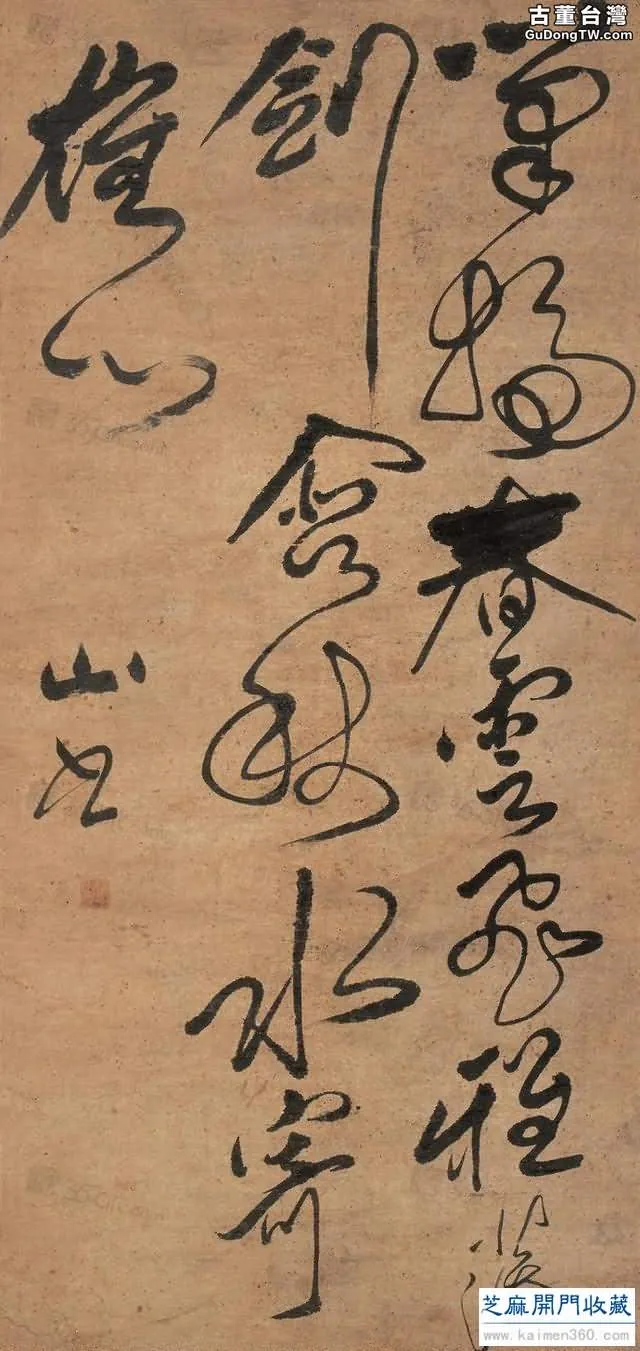 古董台灣
GuDongTW.com
筆春雲飛雅
劍含秋水寄
雄心
山書
芝麻開門收藏
www.kaimen360.com